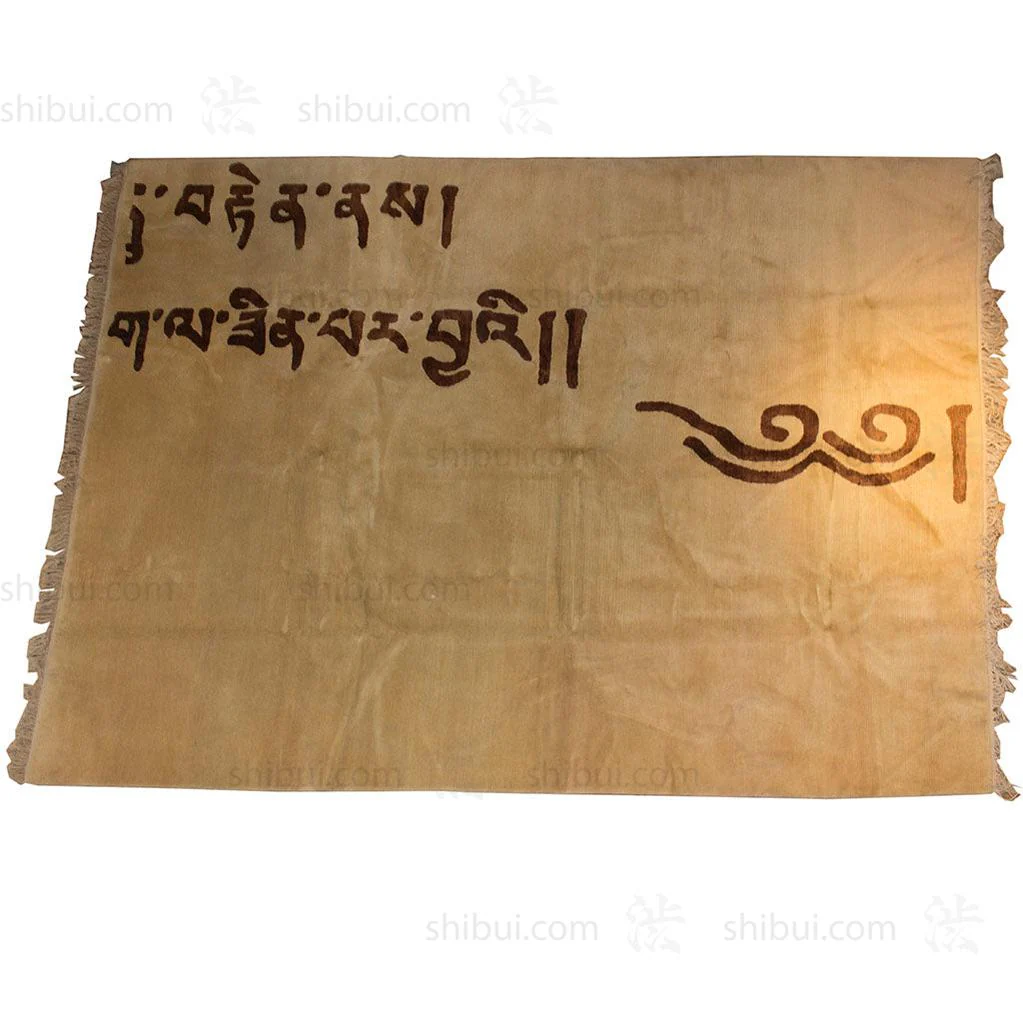 shibui.com 法 shibui.com 法
་བརྟེན་ནས།
shibui.com shibui.com
ག་ལ་ཟིན་པར་བྱའི།།
༄༅།
shibui.com
shibui.com shibui.com
shibui.com 法 shibui.com
shibui.com 法 shibui.com 法